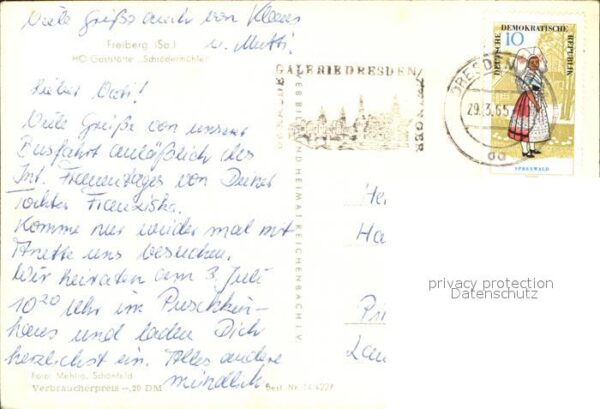 Viele Grüße auch von Klaus
u. Mutti!
Freiberg (Sa.)
HO-Gaststätte „Schrödermühle"
Lieber Dieh!
Viele Grüße von unserer
Busfahrt anläßlich des
Int. Frauentages von Deiner
Tochter Franziska.
Komme nur wieder mal mit
Anette uns besuchen.
Wir heiraten am 3. Juli
10²⁰ Uhr im Puschkin-
haus und laden Dich
herzlichst ein. Alles andere
mündlich.
Foto: Mehlig, Schönfeld
Verbraucherpreis -,20 DM
Best.-Nr.
VEB BILD UND HEIMAT REICHENBACH I. V.
GALERIE DRESDEN
DRESDEN
29.3.65
DEUTSCHE DEMOKRATISCHE REPUBLIK
10
SPREEWALD
He
Ha
Lau
privacy protection
Datenschutz